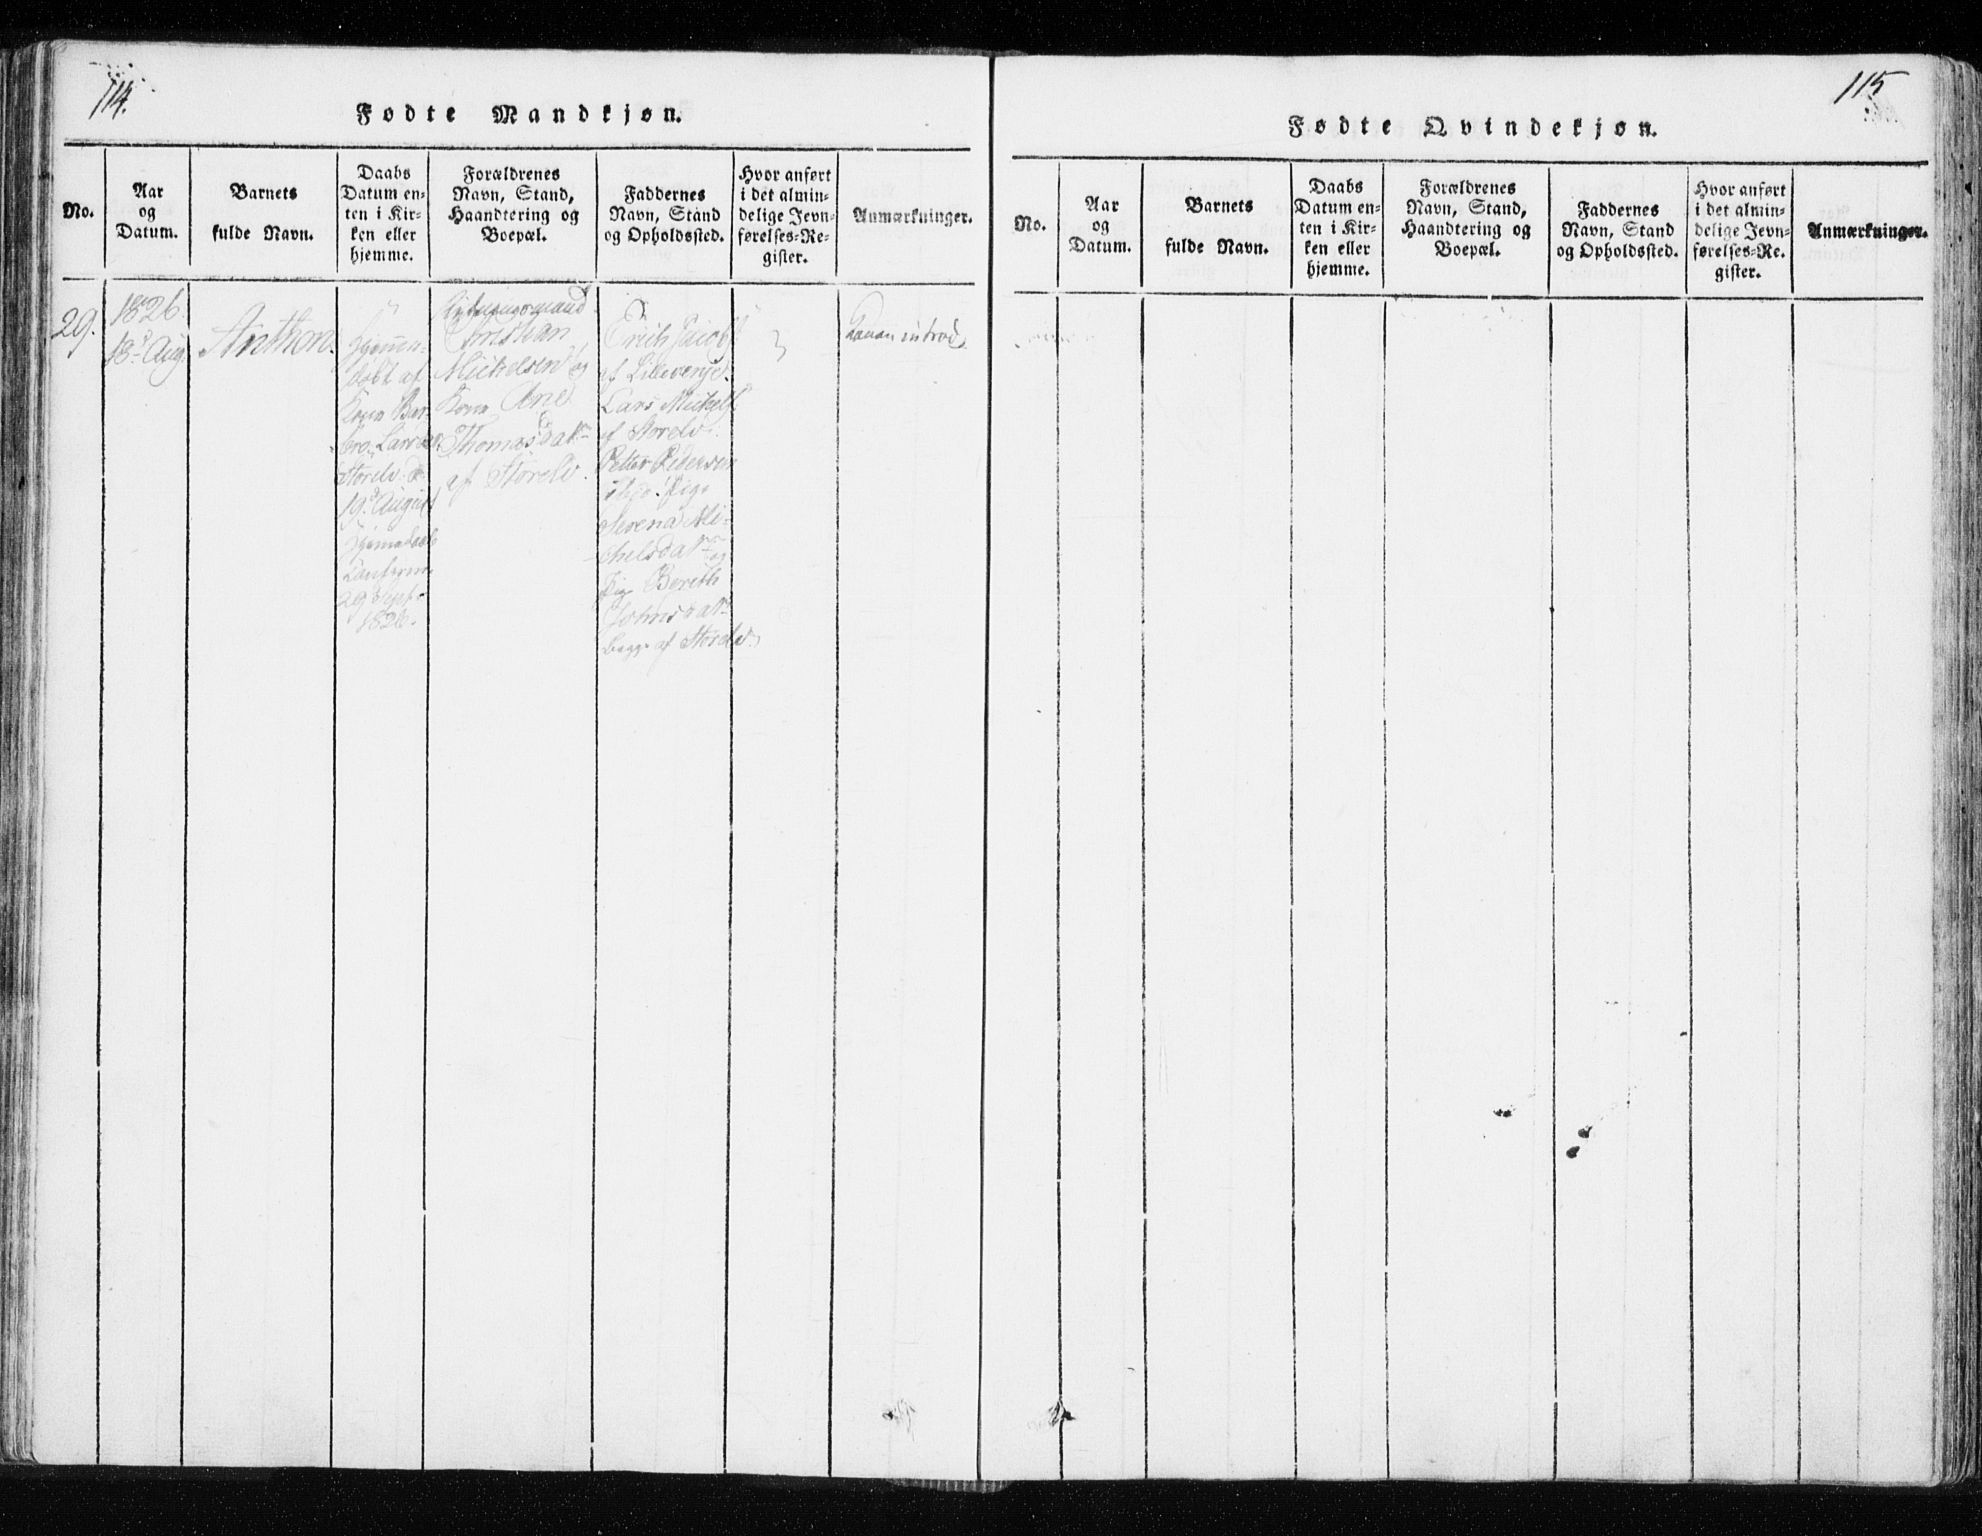 114.
Fødte Mandkjøn.
No.
Aar
og
Datum.
Barnets
fulde Navn.
Daabs
Datum en-
ten i Kir-
ken eller
hjemme.
Forældrenes
Navn, Stand,
Haandtering og
Boepæl.
Faddernes
Navn, Stand
og Opholdssted.
Hvor anført
i det almin-
delige Jevn-
førelses-Re-
gister.
Anmærkninger.
29.
1826.
18de Aug.
Anthon.
Hjemme-
døbt af
Kone Ber-
Storelv d.
19d August
Hjemmedaab
29 Sept.
1826.
Christian
Michelsen og
Kone Ane
Thomasdatr
af Storelv.
Erich Jacobs
af Lillevenje.
Lars Michels
af Storelv.
Petter Pedersen
ibid. Pige
Serena Mi-
chelsdatr og
Pige Berith
Johnsdatr
begge af Storelv.
Konen introd.
115
Fødte Qvindekjøn.
No.
Aar
og
Datum.
Barnets
fulde Navn.
Daabs
Datum en-
ten i Kir-
ken eller
hjemme.
Forældrenes
Navn, Stand,
Haandtering og
Boepæl.
Faddernes
Navn, Stand
og Opholdssted.
Hvor anført
i det almin-
delige Jevn-
førelses-Re-
gister.
Anmærkninger.